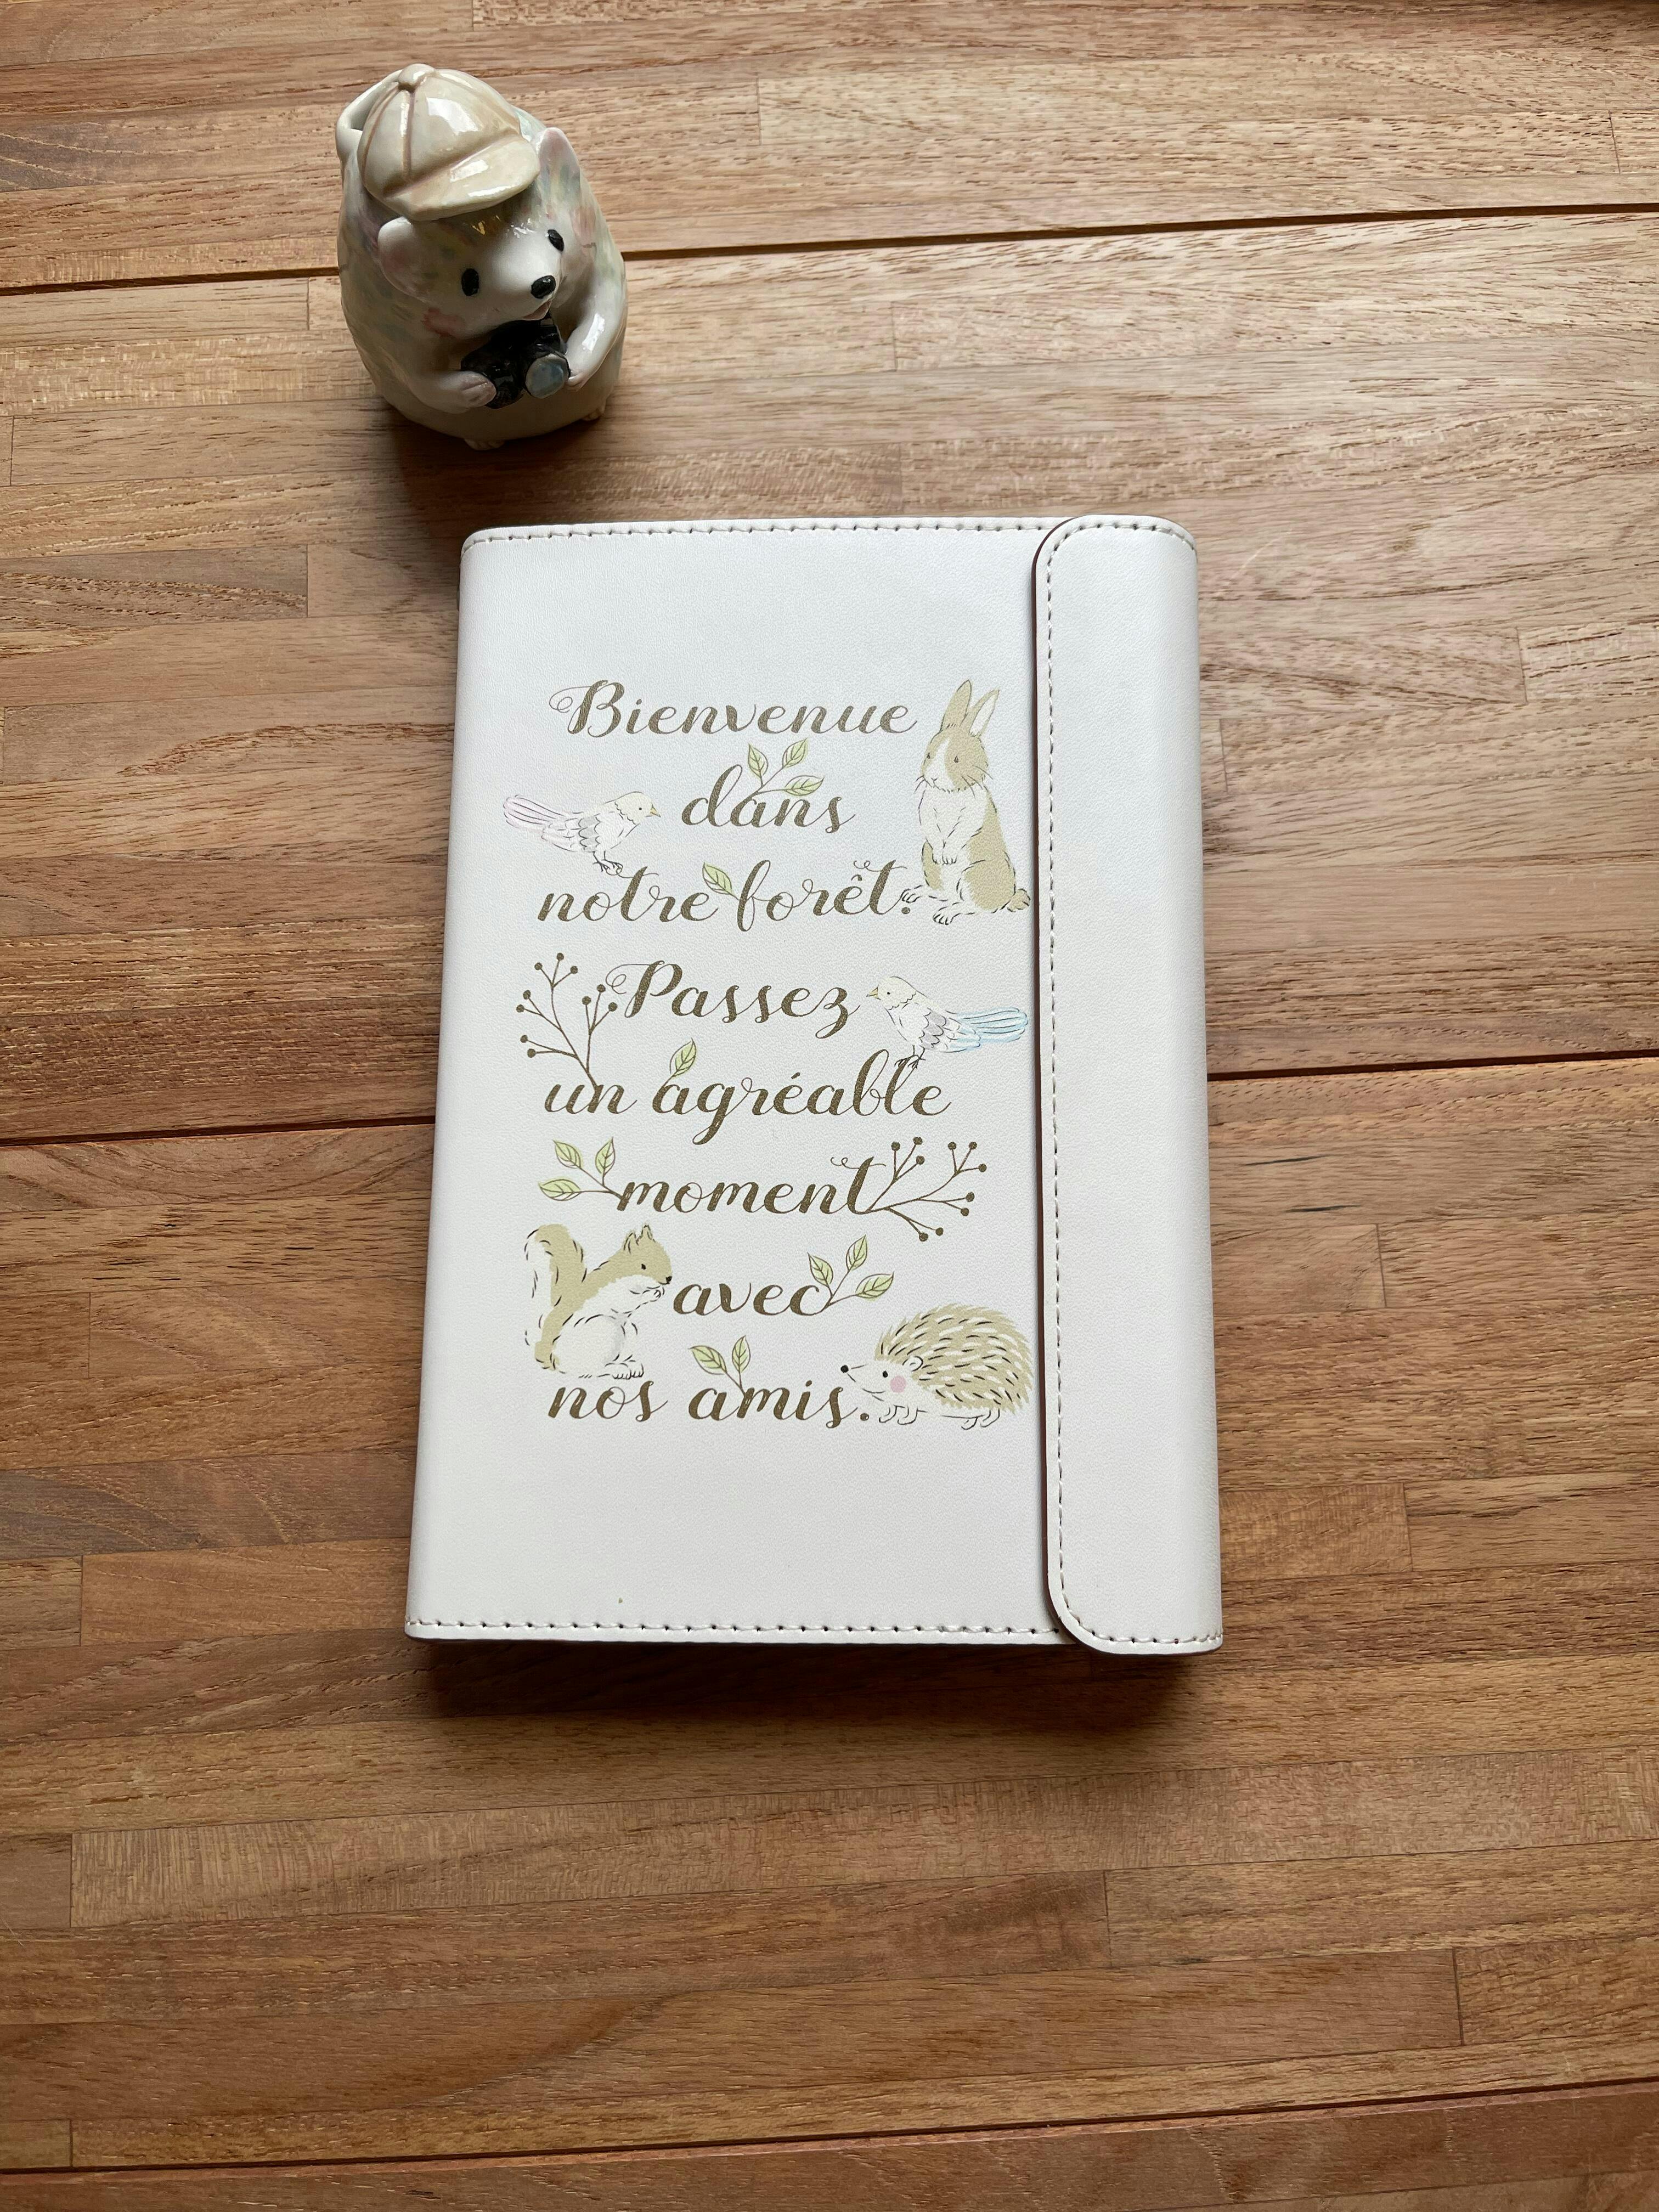 Bienvenue
dans
notre forêt.
Passez
un agréable
moment
avec
nos amis.